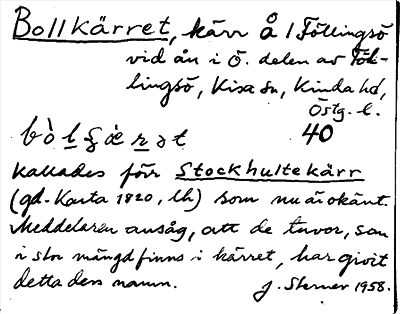 Bollkärret, kärr å 1 Föllingsö
vid ån i Ö. delen av Föl-
lingsö, Kisa sn, Kinda hd,
Östg. l.
40
kallades förr Stockhultekärr
(gd. Karta 1820, Lh) som nu är okänt.
Meddelaren ansåg, att de tuvor, som
i stor mängd finns i kärret, har givit
detta dess namn. J. Sterner 1958.